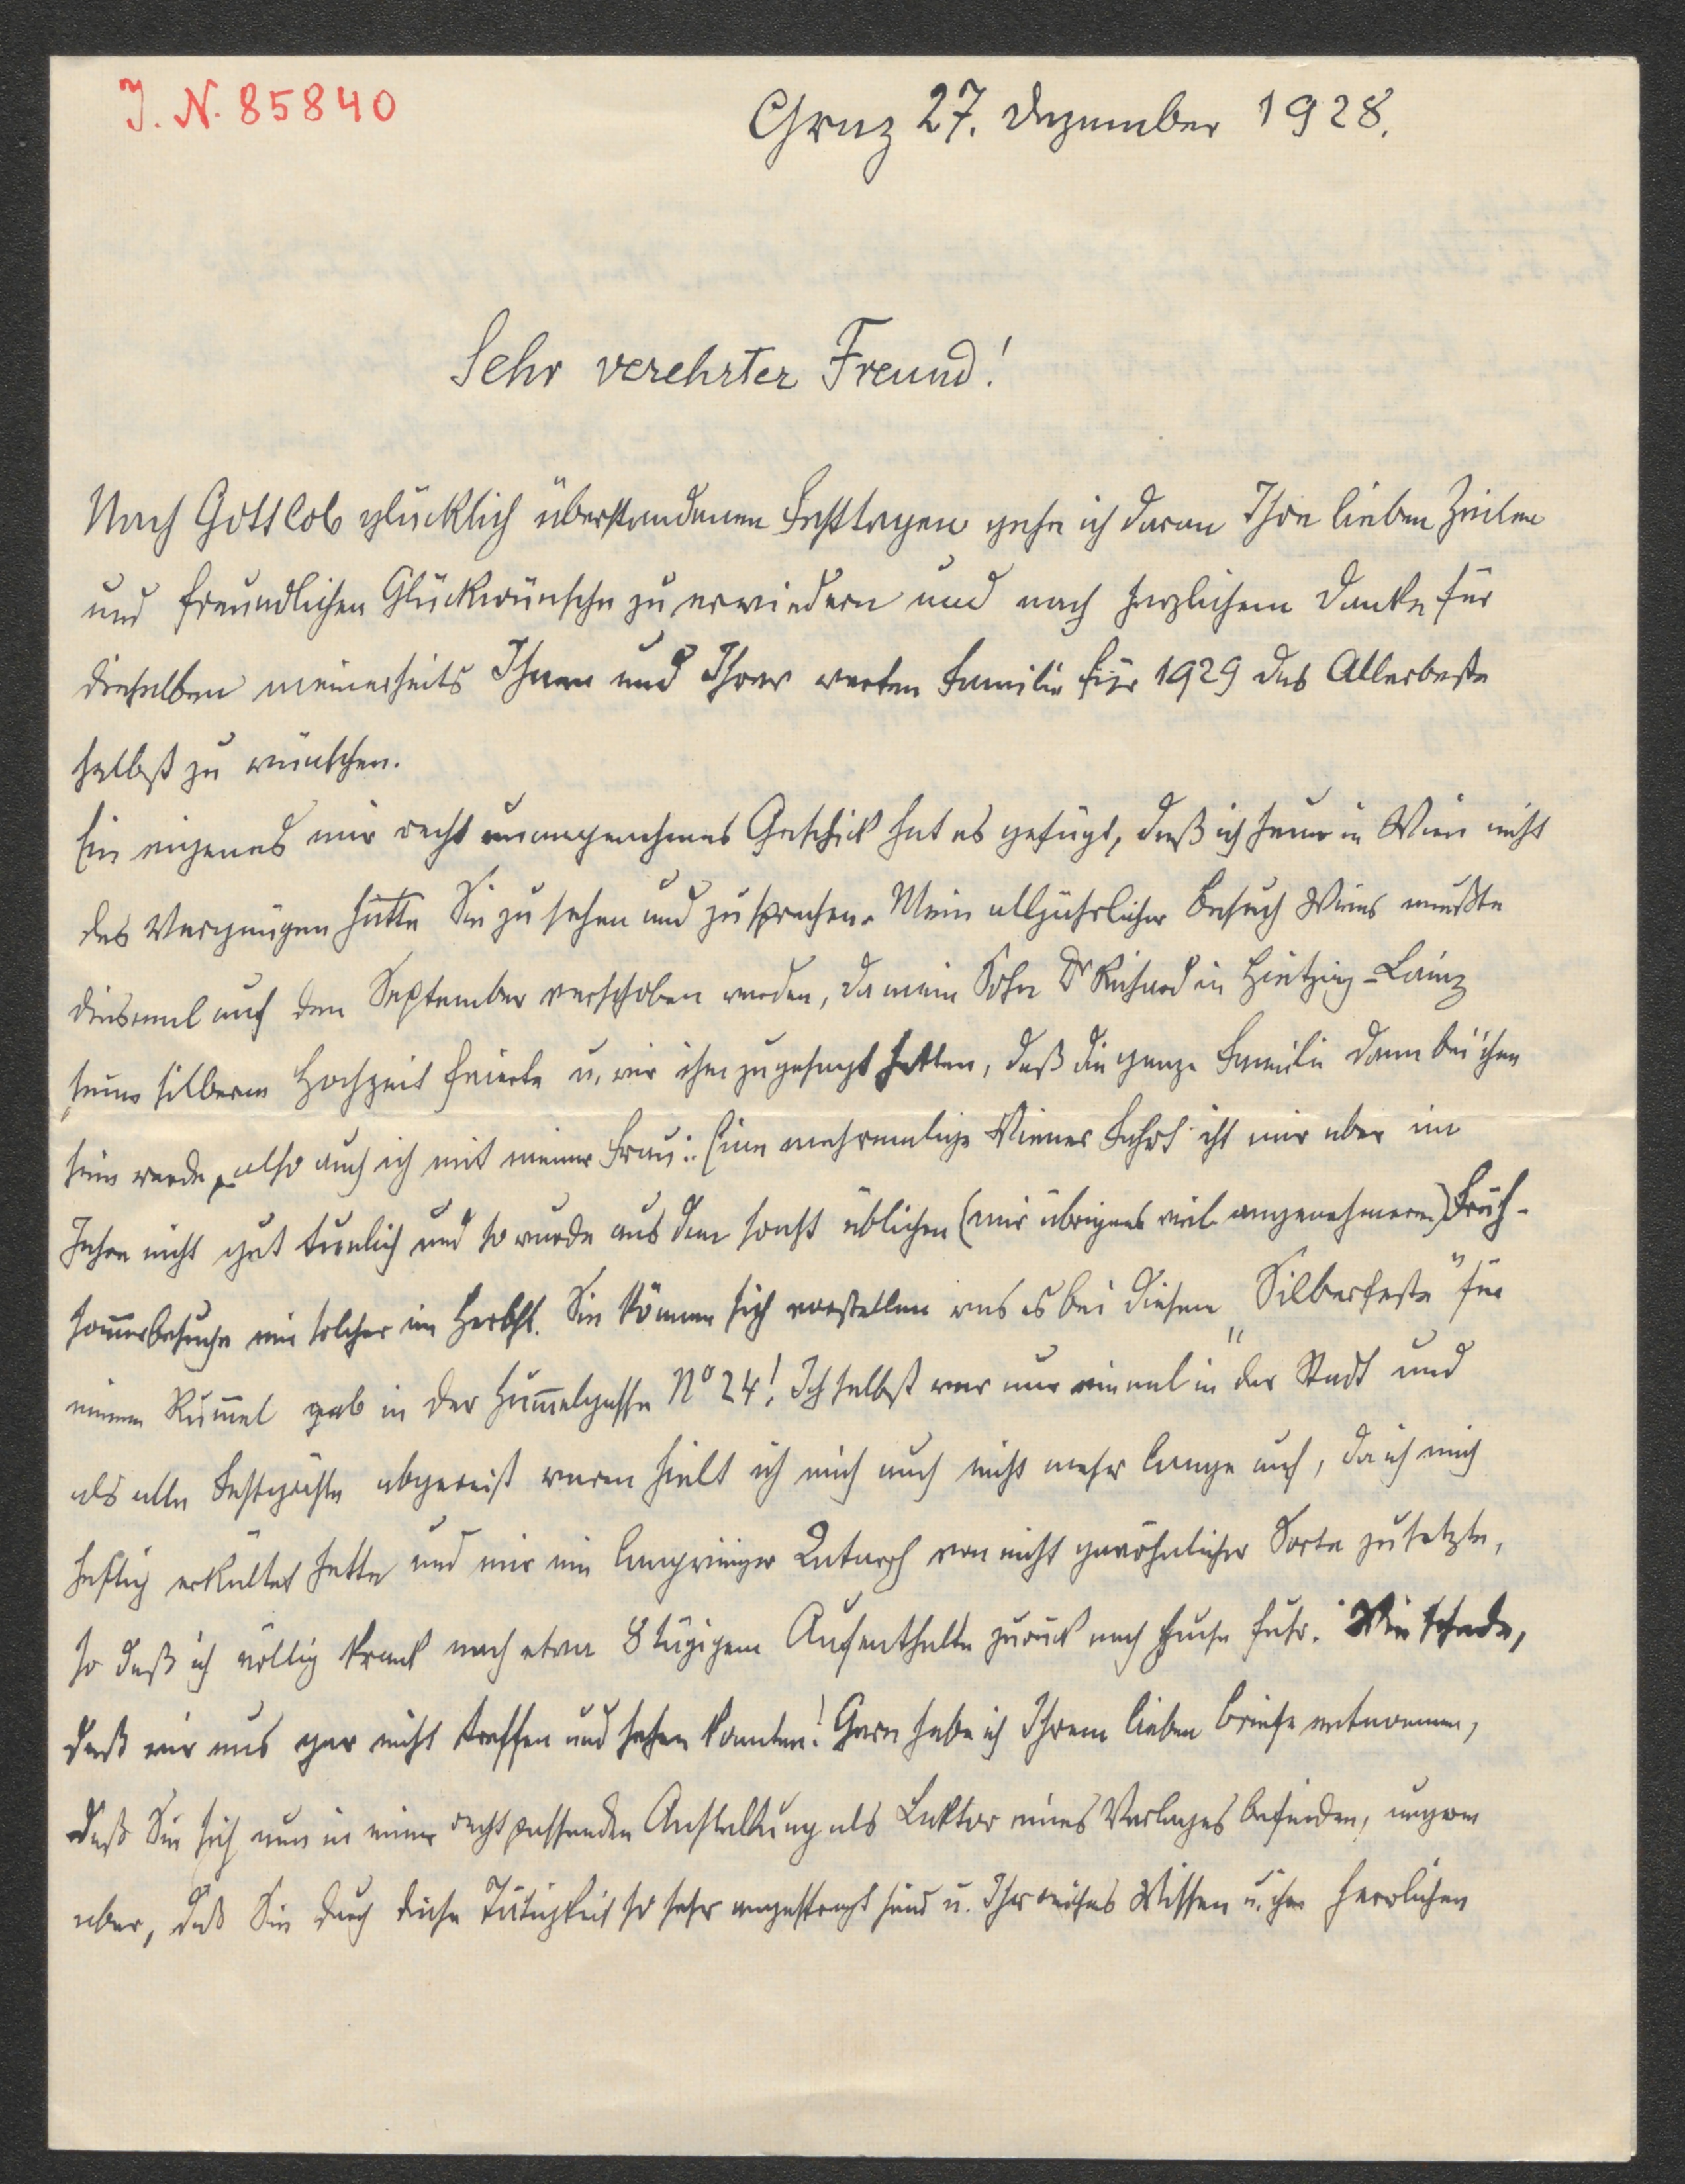 J. N. 85840
Graz 27. Dezember 1928.
Sehr verehrter Freund!
Nach Gottlob glücklich überstandenen Festtagen gehe ich daran Ihre lieben Zeilen
und freundlichen Glückwünsche zu erwiedern und nach herzlichem Danke für
dieselben meinerseits Ihnen und Ihrer werten Familie für 1929 das Allerbeste
selbst zu wünschen.
Ein eigenes mir recht unangenehmes Geschick hat es gefügt, daß ich heuer in Wien nicht
das Vergnügen hatte Sie zu sehen und zu sprechen. Mein alljährlicher Besuch Wiens mußte
diesmal auf den September verschoben werden, da mein Sohn Dr Richard in Hietzing-Lainz
seine silberne Hochzeit feierte u. wir ihm zugesagt hatten, daß die ganze Familie dann bei ihm
sein werde, also auch ich mit meiner Frau: Eine mehrmalige Wiener Fahrt ist mir aber im
Jahre nicht gut tunlich und so wurde aus dem sonst üblichen (mir übrigens viel angenehmeren) Früh-
som̅erbesuche ein solcher im Herbst. Sie können sich vorstellen was es bei diesem „Silberfeste" für
einen Rum̅el gab in der Hum̅elgasse No 24! Ich selbst war nur einmal in der Stadt und
als alle Festgäste abgereist waren hielt ich mich auch nicht mehr lange auf, da ich mich
heftig erkältet hatte und mir ein langwieriger Katarrh von nicht gewöhnlicher Sorte zusetzte,
so daß ich völlig krank nach etwa 8 tägigem Aufenthalte zurück nach Hause fuhr. Wie schade,
daß wir uns gar nicht treffen und sehen konnten! Gern habe ich Ihrem lieben Briefe entnommen,
daß Sie sich nun in einer recht passenden Anstellung als Lektor eines Verlages befinden, ungern
aber, daß Sie durch diese Tätigkeit so sehr angestrengt sind u. Ihr reiches Wissen u. ihre herrlichen